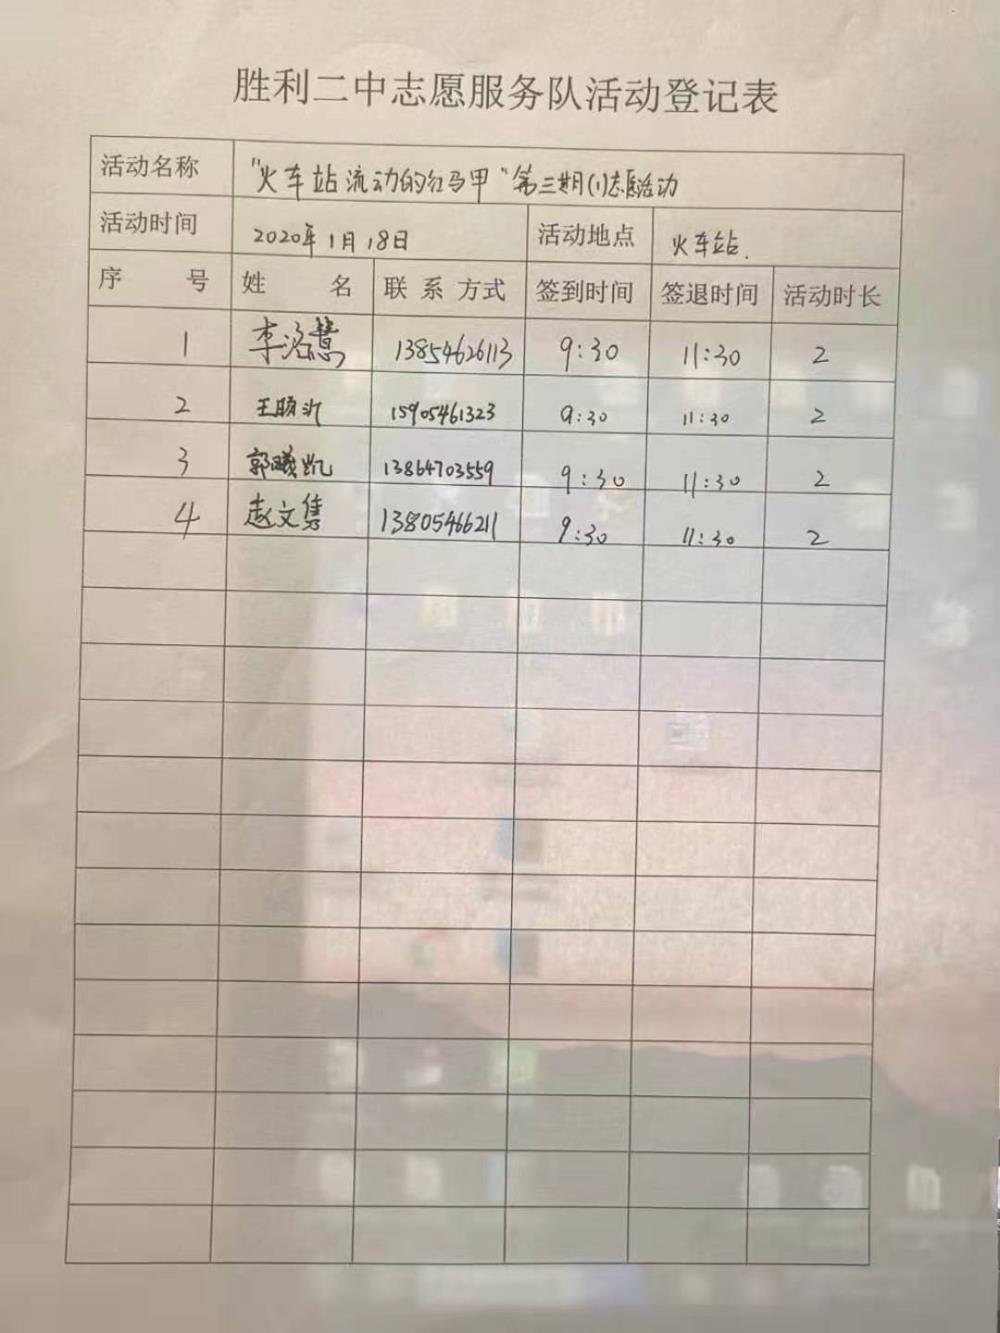 胜利二中志愿服务队活动登记表
活动名称 "火车站流动的红马甲"第三期(1)志愿活动
活动时间 2020年1月18日 活动地点 火车站.
序 号 姓 名 联系方式 签到时间 签退时间 活动时长
1 李洺慧 13854626113 9:30 11:30 2
2 王 15905461323 9:30 11:30 2
3 郭曦凯 13864703559 9:30 11:30 2
4 赵文隽 13805466211 9:30 11:30 2